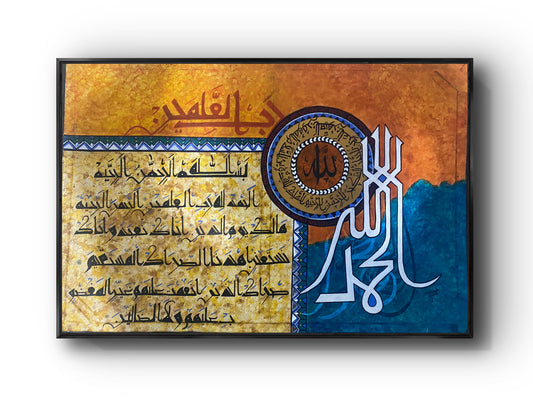 الحمد لله
رب العالمين
الله
بسم الله الرحمن الرحيم
الحمد لله رب العالمين الرحمن الرحيم
مالك يوم الدين إياك نعبد وإياك
نستعين اهدنا الصراط المستقيم
صراط الذين أنعمت عليهم غير المغضو
ب عليهم ولا الضالين